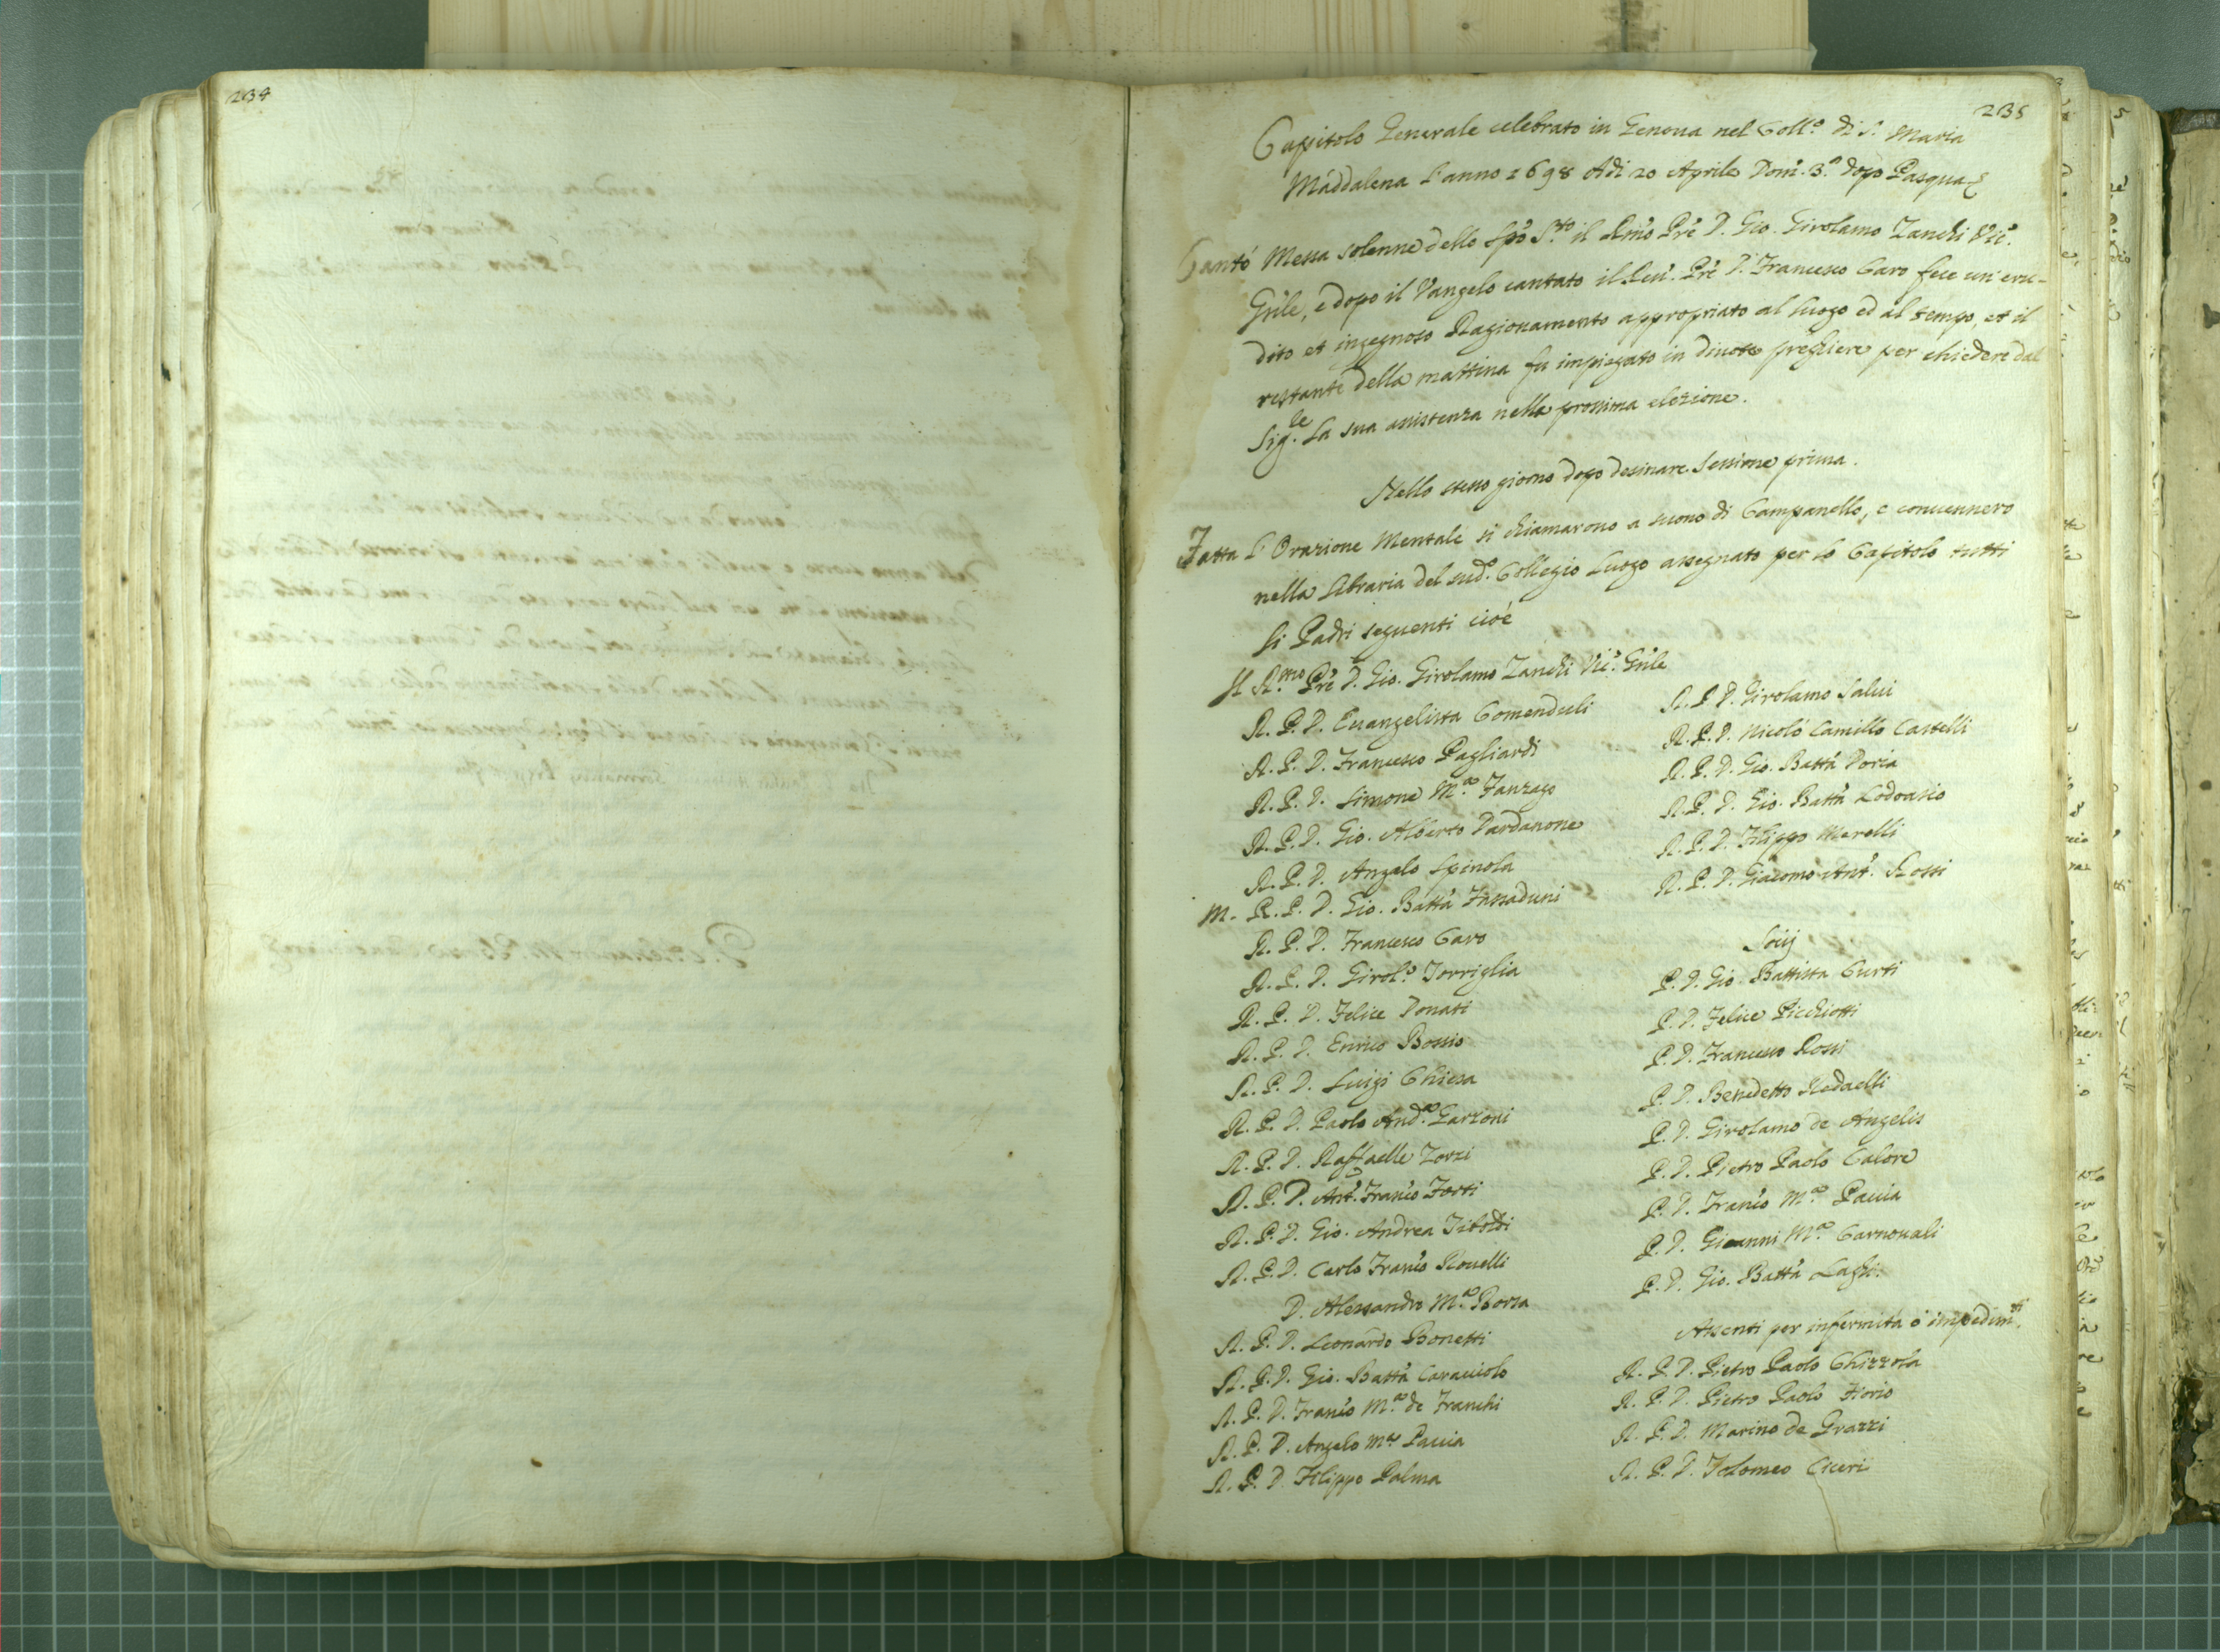 234
235
Capitolo Generale celebrato in Genova nel Coll.º di S. Maria
Maddalena l'anno 1698 Adi 20 Aprile Dom. 3.ª dopo Pasqua
Cantò Messa solenne dello Spõ S.to il Rmo Prê D. Gio. Girolamo Zanchi Vic.
Gnle, e dopo il Vangelo cantato il Rev. Prê D. Francesco Caro fece un'eru-
dito et ingegnoso Ragionamento appropriato al luogo ed al tempo, et il
restante della mattina fu impiegato in divote preghiere per chiedere dal
Sig.re la sua assistenza nella prossima elezione.
Nello stesso giorno dopo desinare Sessione prima.
Fatta l'Orazione Mentale si chiamarono a suono di Campanello, e convennero
nella libraria del sud.º Collegio luogo assegnato per lo Capitolo tutti
li Padri seguenti cioè
Il R.mo Prê D. Gio. Girolamo Zanchi Vic. Gnle
R. P. D. Evangelista Comenduli
R. P. D. Francesco Pagliardi
R. P. D. Simone M.ª Fanzago
R. P. D. Gio. Alberto Dardanone
R. P. D. Angelo Spinola
M. R. P. D. Gio. Batta Fassaduni
R. P. D. Francesco Caro
R. P. D. Girol.º Torriglia
R. P. D. Felice Donati
R. P. D. Enrico Bossio
R. P. D. Luigi Chiesa
R. P. D. Paolo And.ª Garzoni
R. P. D. Raffaelle Zorzi
R. P. D. Ant. Franco Forti
R. P. D. Gio. Andrea Tiboldi
R. P. D. Carlo Franco Rovelli
D. Alessandro M.ª Borsa
R. P. D. Leonardo Bonetti
R. P. D. Gio. Batta Caracciolo
R. P. D. Franco M.ª de Franchi
R. P. D. Angelo M.ª Pavia
R. P. D. Filippo Palma
R. P. D. Girolamo Salvi
R. P. D. Nicolò Camillo Castelli
R. P. D. Gio. Batta Doria
R. P. D. Gio. Batta Lodovasio
R. P. D. Filippo Merelli
R. P. D. Giacomo Ant. Rossi
Socij
P. D. Gio. Battista Curti
P. D. Felice Picchiotti
P. D. Francesco Rossi
P. D. Benedetto Redaelli
P. D. Girolamo de Angelis
P. D. Pietro Paolo Calore
P. D. Franco M.ª Pavia
P. D. Gioanni M.ª Carnovali
P. D. Gio. Batta Laghi
Assenti per infermità ò impedim.ti
R. P. D. Pietro Paolo Ghizzola
R. P. D. Pietro Paolo Fiorio
R. P. D. Marino de Grazzi
R. P. D. Tolomeo Ciceri